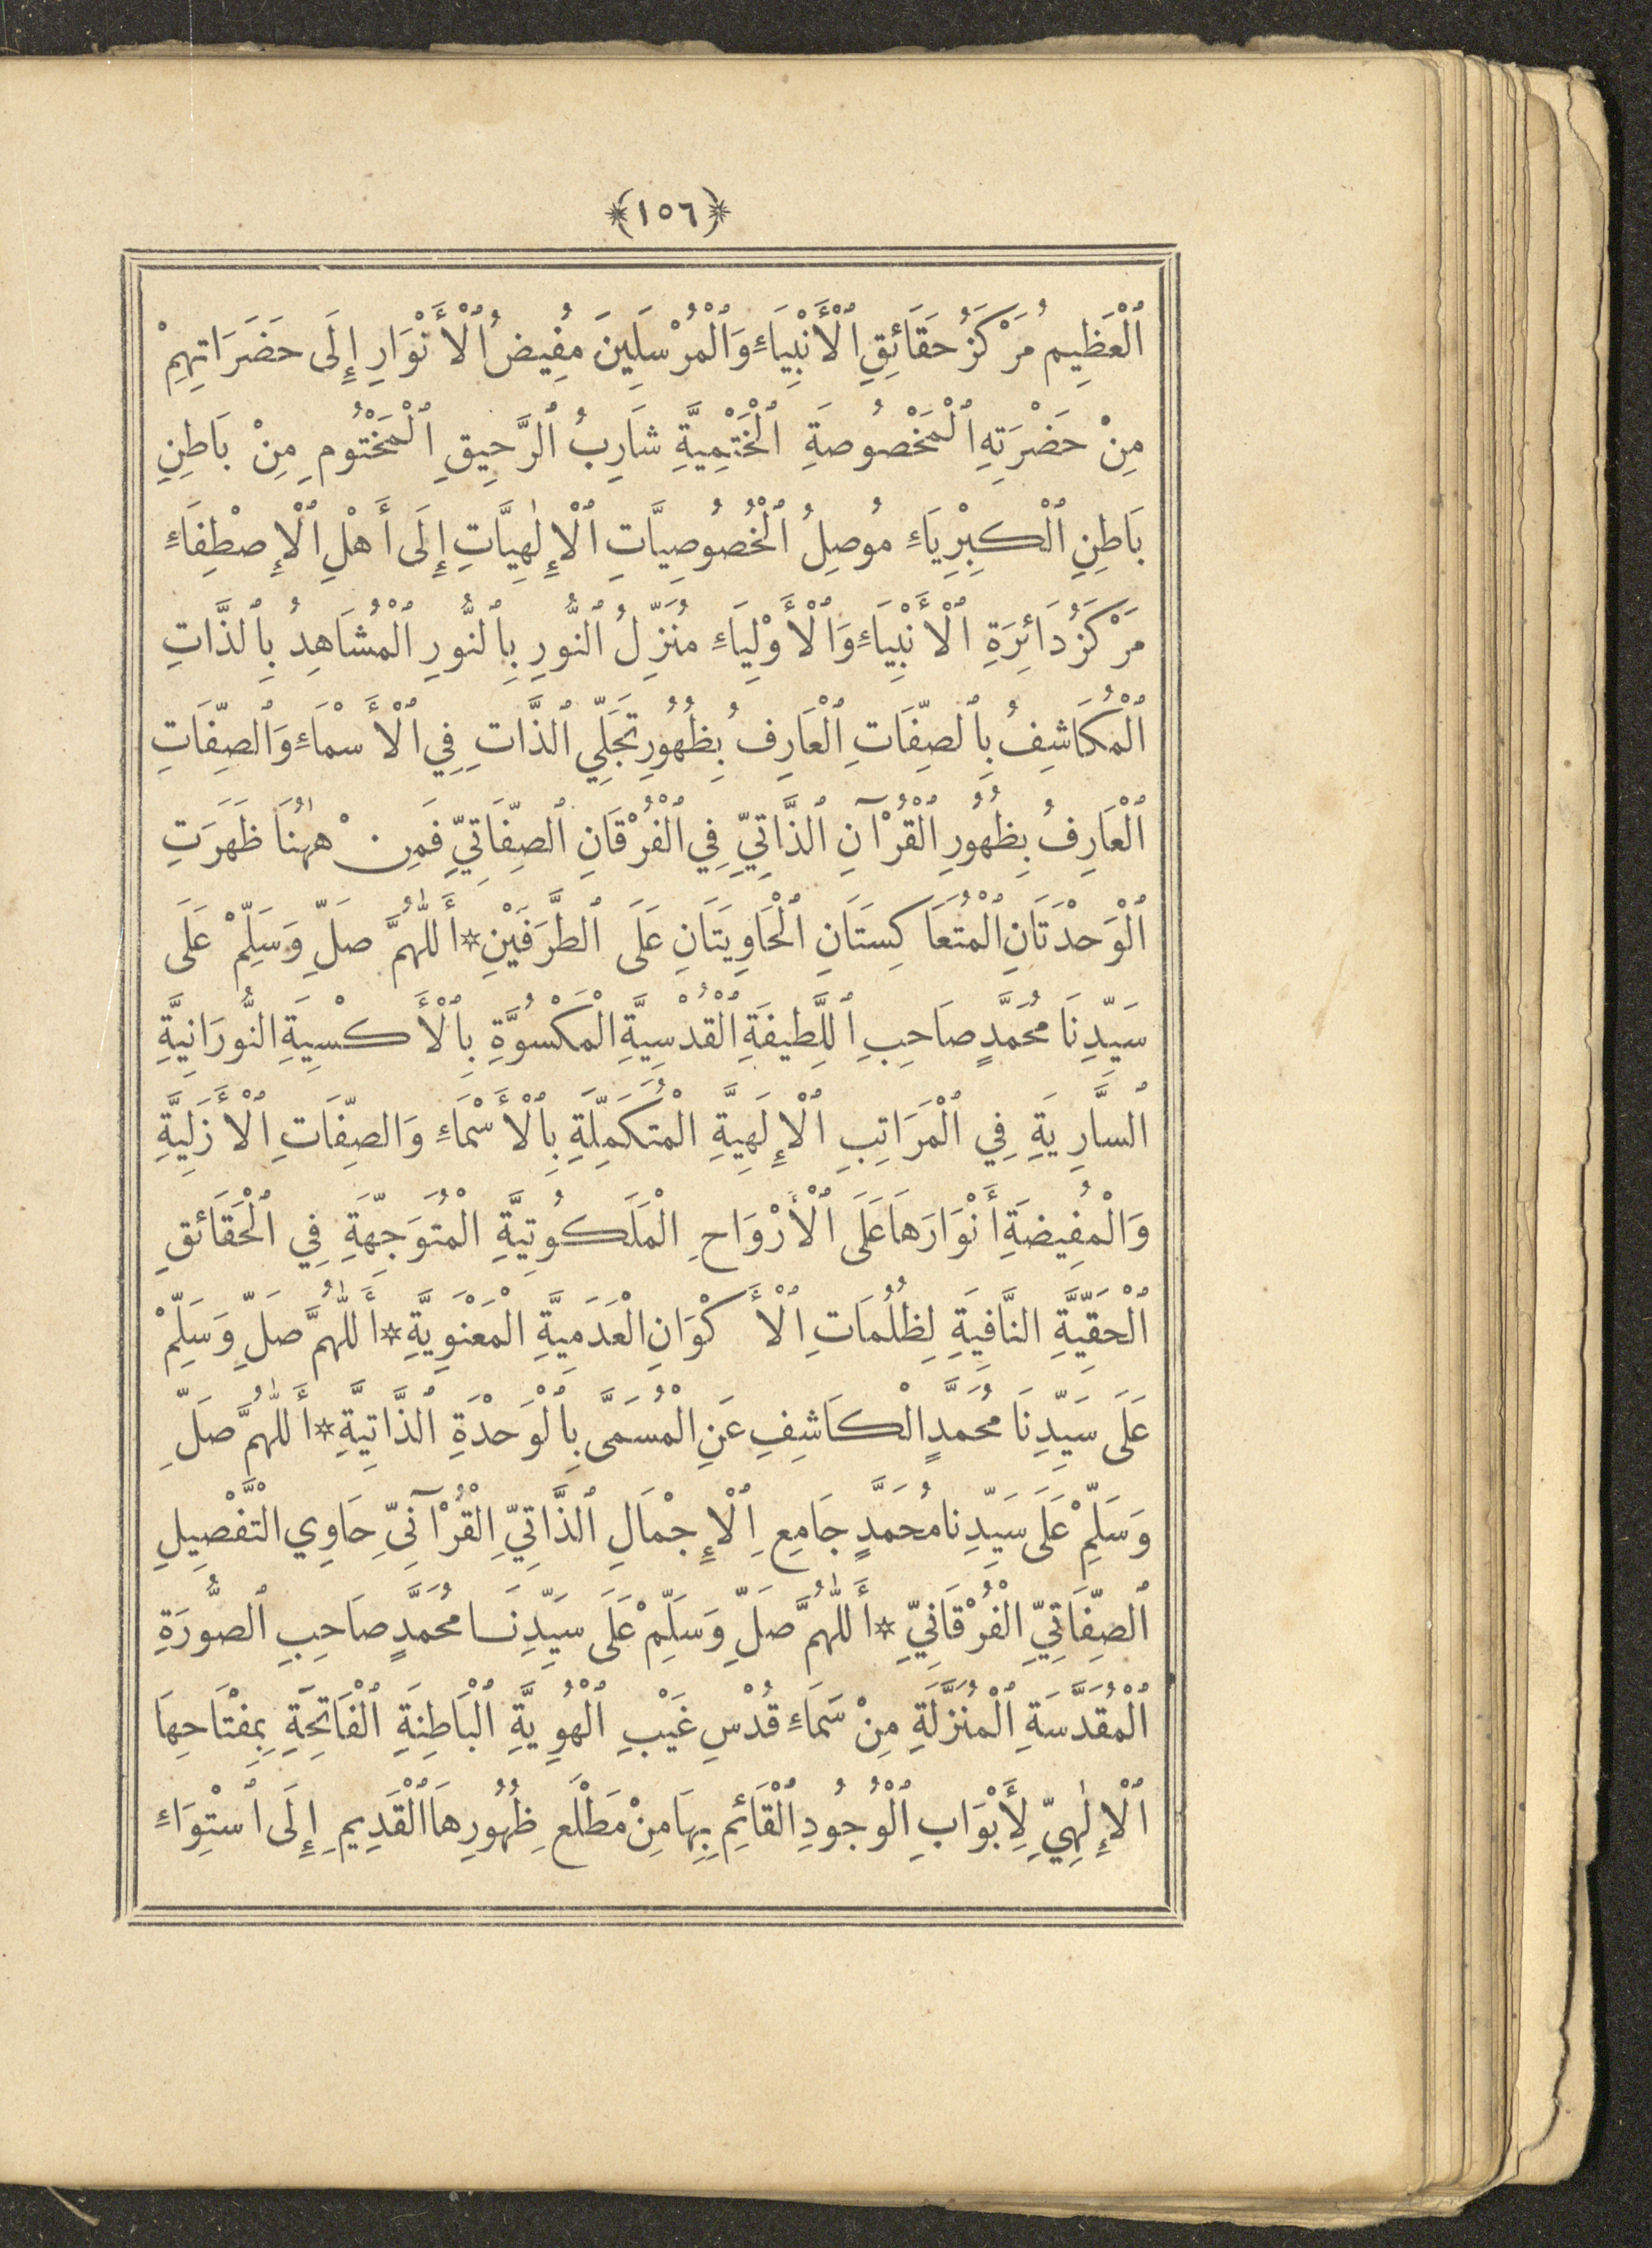 ﴿١٥٦﴾
ٱلْعَظِيمُ مَرْكَزُ حَقَائِقِ ٱلْأَنْبِيَاءِ وَٱلْمُرْسَلِينَ مُفِيضُ ٱلْأَنْوَارِ إِلَى حَضَرَاتِهِمْ
مِنْ حَضْرَتِهِ ٱلْمَخْصُوصَةِ ٱلْخَتْمِيَّةِ شَارِبُ ٱلرَّحِيقِ ٱلْمَخْتُومِ مِنْ بَاطِنِ
بَاطِنِ ٱلْكِبْرِيَاءِ مُوصِلُ ٱلْخُصُوصِيَّاتِ ٱلْإِلٰهِيَّاتِ إِلَى أَهْلِ ٱلْإِصْطِفَاءِ
مَرْكَزُ دَائِرَةِ ٱلْأَنْبِيَاءِ وَٱلْأَوْلِيَاءِ مُنَزِّلُ ٱلنُّورِ بِٱلنُّورِ ٱلْمُشَاهِدُ بِٱلذَّاتِ
ٱلْمُكَاشِفُ بِٱلصِّفَاتِ ٱلْعَارِفُ بِظُهُورِ تَجَلِّي ٱلذَّاتِ فِي ٱلْأَسْمَاءِ وَٱلصِّفَاتِ
ٱلْعَارِفُ بِظُهُورِ ٱلْقُرْآنِ ٱلذَّاتِيِّ فِي ٱلْفُرْقَانِ ٱلصِّفَاتِيِّ فَمِنْ هٰهُنَا ظَهَرَتِ
ٱلْوَحْدَتَانِ ٱلْمُتَعَاكِسَتَانِ ٱلْحَاوِيَتَانِ عَلَى ٱلطَّرَفَيْنِ * أَللّٰهُمَّ صَلِّ وَسَلِّمْ عَلَى
سَيِّدِنَا مُحَمَّدٍ صَاحِبِ ٱللَّطِيفَةِ ٱلْقُدْسِيَّةِ الْمَكْسُوَّةِ بِٱلْأَكْسِيَةِ النُّورَانِيَّةِ
ٱلسَّارِيَةِ فِي ٱلْمَرَاتِبِ ٱلْإِلَهِيَّةِ الْمُتَكَمِّلَةِ بِٱلْأَسْمَاءِ وَالصِّفَاتِ ٱلْأَزَلِيَّةِ
وَالْمُفِيضَةِ أَنْوَارَهَا عَلَى ٱلْأَرْوَاحِ الْمَلَكُوتِيَّةِ الْمُتَوَجِّهَةِ فِي ٱلْحَقَائِقِ
ٱلْحَقِّيَّةِ النَّافِيَةِ لِظُلُمَاتِ ٱلْأَكْوَانِ الْعَدَمِيَّةِ الْمَعْنَوِيَّةِ * أَللّٰهُمَّ صَلِّ وَسَلِّمْ
عَلَى سَيِّدِنَا مُحَمَّدٍ الْكَاشِفِ عَنِ الْمُسَمَّى بِٱلْوَحْدَةِ ٱلذَّاتِيَّةِ * أَللّٰهُمَّ صَلِّ
وَسَلِّمْ عَلَى سَيِّدِنَا مُحَمَّدٍ جَامِعِ ٱلْإِجْمَالِ ٱلذَّاتِيِّ الْقُرْآنِيِّ حَاوِي التَّفْصِيلِ
ٱلصِّفَاتِيِّ الْفُرْقَانِيِّ * أَللّٰهُمَّ صَلِّ وَسَلِّمْ عَلَى سَيِّدِنَا مُحَمَّدٍ صَاحِبِ ٱلصُّورَةِ
ٱلْمُقَدَّسَةِ ٱلْمُنَزَّلَةِ مِنْ سَمَاءِ قُدْسِ غَيْبِ ٱلْهُوِيَّةِ ٱلْبَاطِنَةِ ٱلْفَاتِحَةِ بِمِفْتَاحِهَا
ٱلْإِلٰهِيِّ لِأَبْوَابِ ٱلْوُجُودِ ٱلْقَائِمِ بِهَا مِنْ مَطْلَعِ ظُهُورِهَا ٱلْقَدِيمِ إِلَى ٱسْتِوَاءِ